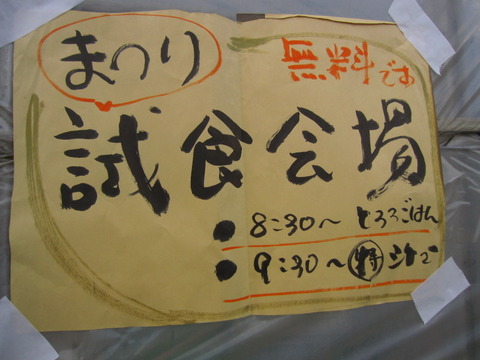 まつり
無料です
試食会場
● 8:30〜 とろろごはん
● 9:30〜 ㊕ 汁